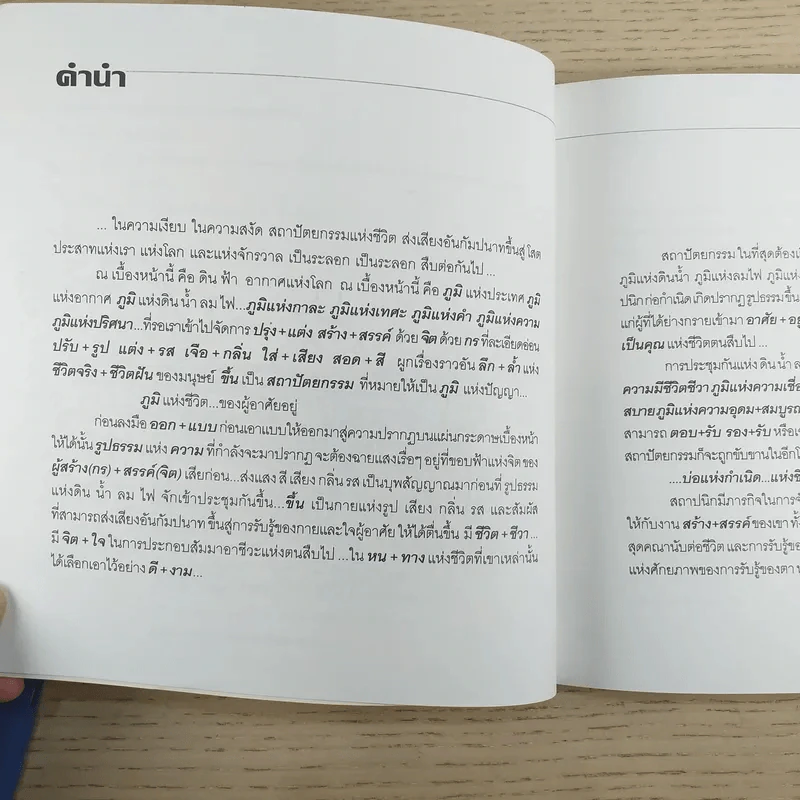 คำนำ
... ในความเงียบ ในความสงัด สถาปัตยกรรมแห่งชีวิต ส่งเสียงอันกัมปนาทขึ้นสู่ โสต
ประสาทแห่งเรา แห่งโลก และแห่งจักรวาล เป็นระลอก เป็นระลอก สืบต่อกันไป ...
ณ เบื้องหน้านี้ คือ ดิน ฟ้า อากาศแห่งโลก ณ เบื้องหน้านี้ คือ ภูมิ แห่งประเทศ ภูมิ
แห่งอากาศ ภูมิ แห่งดิน น้ำ ลม ไฟ...ภูมิแห่งกาละ ภูมิแห่งเทศะ ภูมิแห่งคำ ภูมิแห่งความ
ภูมิแห่งปริศนา...ที่รอเราเข้าไปจัดการ ปรุง+แต่ง สร้าง+สรรค์ ด้วย จิต ด้วย กร ที่ละเอียดอ่อน
ปรับ+รูป แต่ง+รส เจือ+กลิ่น ใส่+เสียง สอด+สี ผูกเรื่องราวอัน ลึก+ล้ำ แห่ง
ชีวิตจริง+ชีวิตฝัน ของมนุษย์ ขึ้น เป็น สถาปัตยกรรม ที่หมายให้เป็น ภูมิ แห่งปัญญา...
ภูมิ แห่งชีวิต...ของผู้อาศัยอยู่
ก่อนลงมือ ออก+แบบ ก่อนเอาแบบให้ออกมาสู่ความปรากฏบนแผ่นกระดาษเบื้องหน้า
ให้ได้นั้น รูปธรรม แห่ง ความ ที่กำลังจะมาปรากฏ จะต้องฉายแสงเรื่อๆ อยู่ที่ขอบฟ้าแห่งจิต ของ
ผู้สร้าง(กร)+สรรค์(จิต) เสียก่อน...ส่งแสง สี เสียง กลิ่น รส เป็นบุพสัญญาณมาก่อนที่ รูปธรรม
แห่งดิน น้ำ ลม ไฟ จักเข้าประชุมกันขึ้น...ขึ้น เป็นกายแห่งรูป เสียง กลิ่น รส และสัมผัส
ที่สามารถส่งเสียงอันกัมปนาท ขึ้นสู่การรับรู้ของกายและใจผู้อาศัย ให้ได้ตื่นขึ้น มี ชีวิต+ชีวา...
มี จิต+ใจ ในการประกอบสัมมาอาชีวะแห่งตนสืบไป ...ใน หน+ทาง แห่งชีวิตที่เขาเหล่านั้น
ได้เลือกเอาไว้อย่าง ดี+งาม...
สถาปัตยกรรม ในที่สุดต้อง
ภูมิแห่งดินน้ำ ภูมิแห่งลมไฟ ภูมิแห่ง
ปนิกก่อกำเนิด เกิดปรากฏ รูปธรรมขึ้น
แก่ผู้ที่ได้ย่างกรายเข้ามา อาศัย+อยู่
เป็นคุณ แห่งชีวิตตนสืบไป ...
การประชุมกันแห่ง ดิน น้ำ
ความมีชีวิตชีวา ภูมิแห่งความเชื่อ
สบายภูมิแห่งความอุดม+สมบูรณ์
สามารถ ตอบ+รับ รอง+รับ หรือ
สถาปัตยกรรมก็จะถูกขับขานในอีก
....บ่อแห่งกำเนิด...แห่ง
สถาปนิกมีภารกิจในการ
ให้กับงาน สร้าง+สรรค์ ของเขา
สุดคณานับต่อชีวิต และการรับรู้
แห่งศักยภาพของการรับรู้ของตา